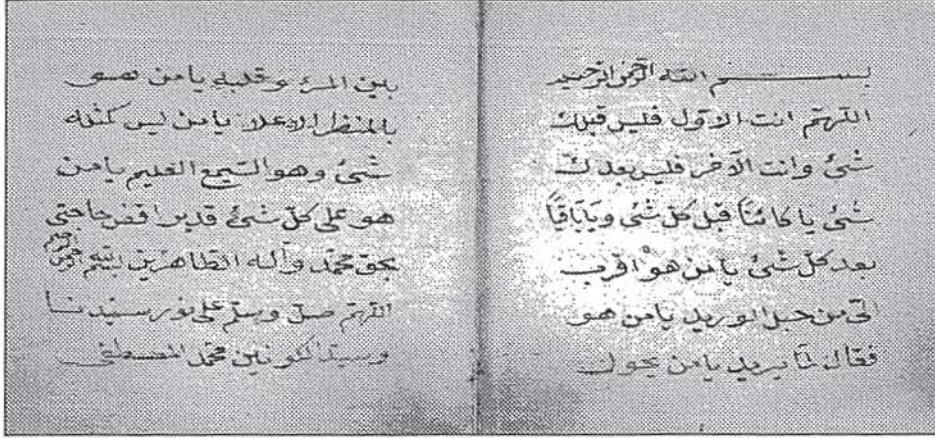 بسم الله الرحمن الرحيم
اللهم انت الاول فليس قبلك
شئ وانت الآخر فليس بعدك
شئ يا كائناً قبل كل شئ وياباقياً
بعد كل شئ يا من هو اقرب
الى من حبل الوريد يا من هو
فعال لما يريد يا من يحول
بين المرء وقلبه يا من هو
بالمنظر الاعلا يا من ليس كمثله
شئ وهو السميع العليم يا من
هو على كل شئ قدير اقض حاجتى
بحق محمد وآله الطاهرين
اللهم صل وسلم على نور سيدنا
وسيد الكونين محمد المصطفى